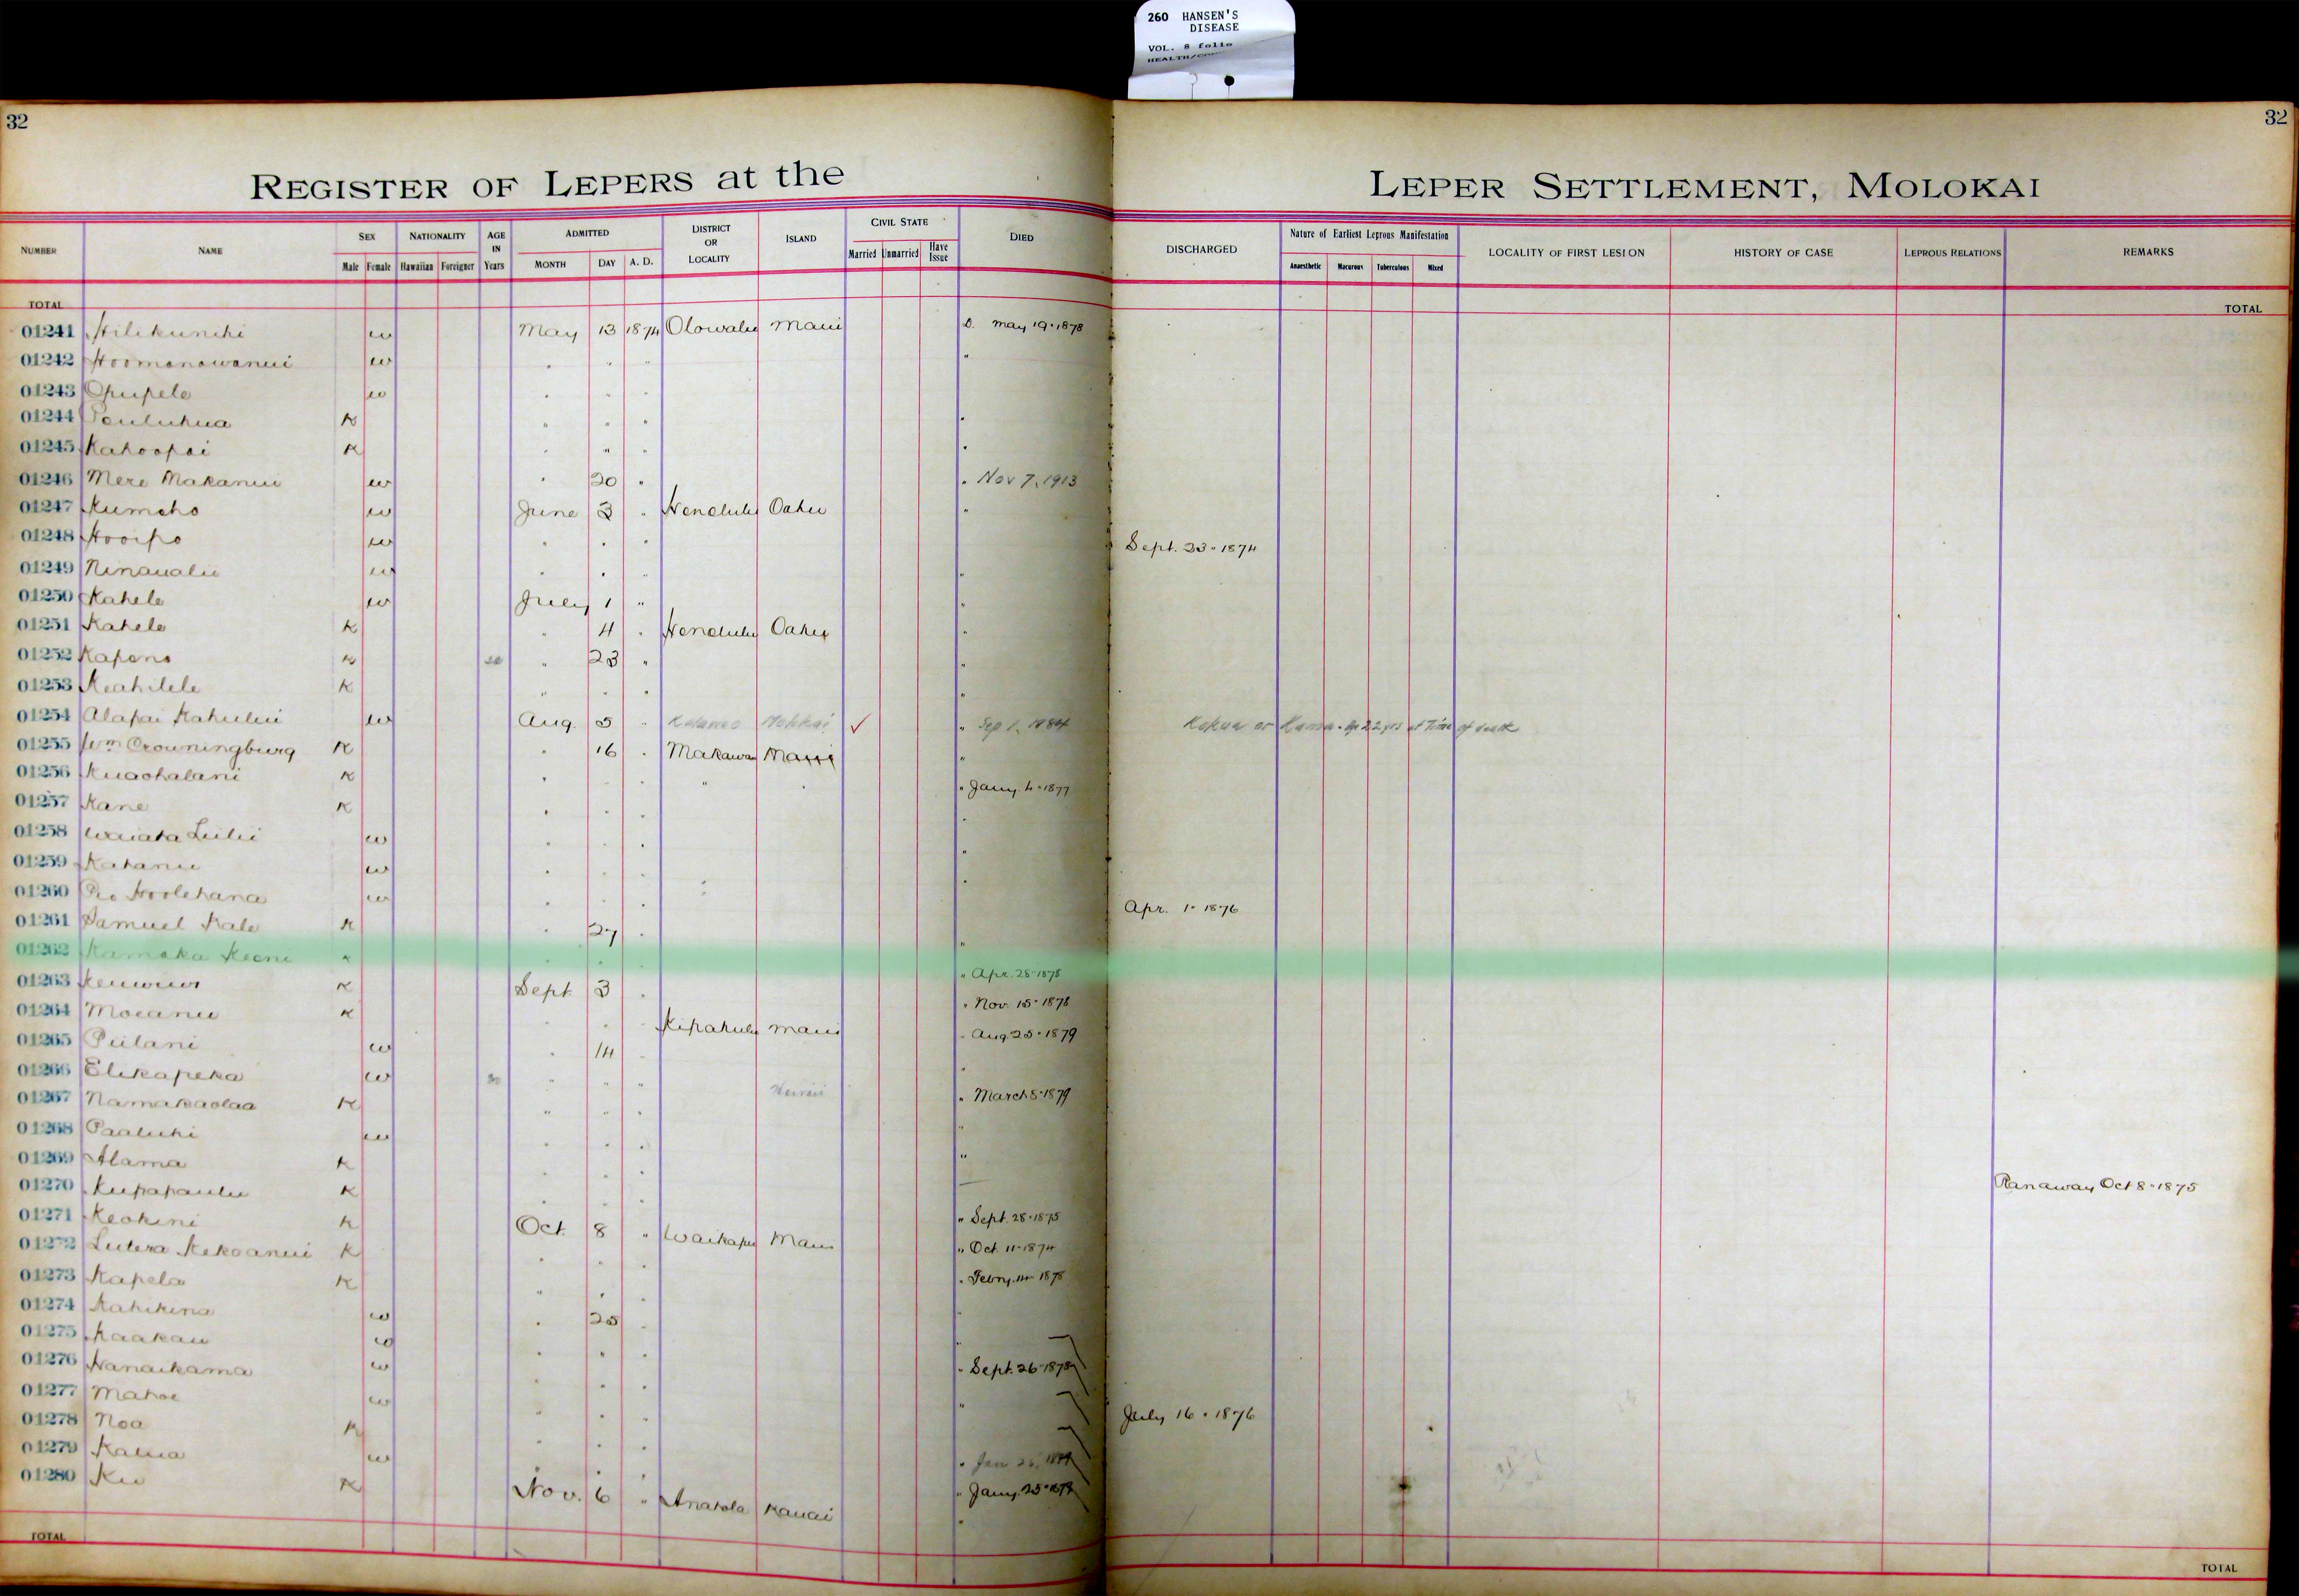 260 HANSEN'S
DISEASE
VOL. 8 folio
32
32
REGISTER OF LEPERS at the LEPER SETTLEMENT, MOLOKAI
NUMBER NAME SEX Male Female NATIONALITY Hawaiian Foreigner AGE IN Years ADMITTED MONTH DAY A. D. DISTRICT OR LOCALITY ISLAND CIVIL STATE Married Unmarried Have Issue DIED DISCHARGED Nature of Earliest Leprous Manifestation Anaesthetic Macurous Tuberculous Mixed LOCALITY OF FIRST LESION HISTORY OF CASE LEPROUS RELATIONS REMARKS
TOTAL TOTAL
01241 Hilikunihi w May 13 1874 Olowalu Maui D. May 19 · 1878
01242 Hoomanawanui w " " " "
01243 Opupele w " " "
01244 Pauluhua K " " " "
01245 Kahoopai K " " " "
01246 Mere Makanui w " 20 " " Nov 7, 1913
01247 Kumeho w June 3 " Honolulu Oahu "
01248 Hooipo w " " " Sept. 23 · 1874
01249 Ninaualu w " " " "
01250 Kahele w July 1 " "
01251 Kahele K " 4 " Honolulu Oahu "
01252 Kapono K " 23 " "
01253 Keahilele K " " " "
01254 Alapai Kahului w Aug. 5 " Kalawao Molokai ✓ " Sep 1, 1884 Kokua or Kamaa. Age 22 yrs at Time of death
01255 Wm Crowningburg K " 16 " Makawao Maui "
01256 Kuaohalani K " " " " " " Jany 4 · 1877
01257 Kane K " " " "
01258 Waiaka Luilii w " " " "
01259 Kahanu w " " " "
01260 Hoolehana w " " " Apr. 1 · 1876
01261 Samuel Kale K " 27 " "
01262 Kamaka Keoni K " " " Apr. 28 · 1878
01263 K Sept 3 " " Nov. 15 · 1878
01264 Moeanu K " " " Kipahulu Maui " Aug 25 · 1879
01265 Piilani w " 14 " "
01266 Elikapeka w 30 " " " Hawaii " March 8 · 1879
01267 Namakaolaa K " " " "
01268 Paaluhi w " " " "
01269 Alama K " " "
01270 Kupapaulu K " " " " Sept. 28 · 1875 Ranaway Oct 8 · 1875
01271 Keohini K Oct. 8 " Waikapu Maui " Oct. 11 · 1874
01272 Lutera Kekoanui K " " " " Febry. 14 1878
01273 Kapela K " " " "
01274 Kahikina w " 25 " "
01275 Kaakau w " " " " Sept. 26 · 1878
01276 Nanaikama w " " " "
01277 Mahoe w " " " July 16 · 1876
01278 Noa K " " "
01279 Kalua w " " " " Jany. 25 · 1879
01280 Ku K Nov. 6 " Anahola Kauai "
TOTAL TOTAL